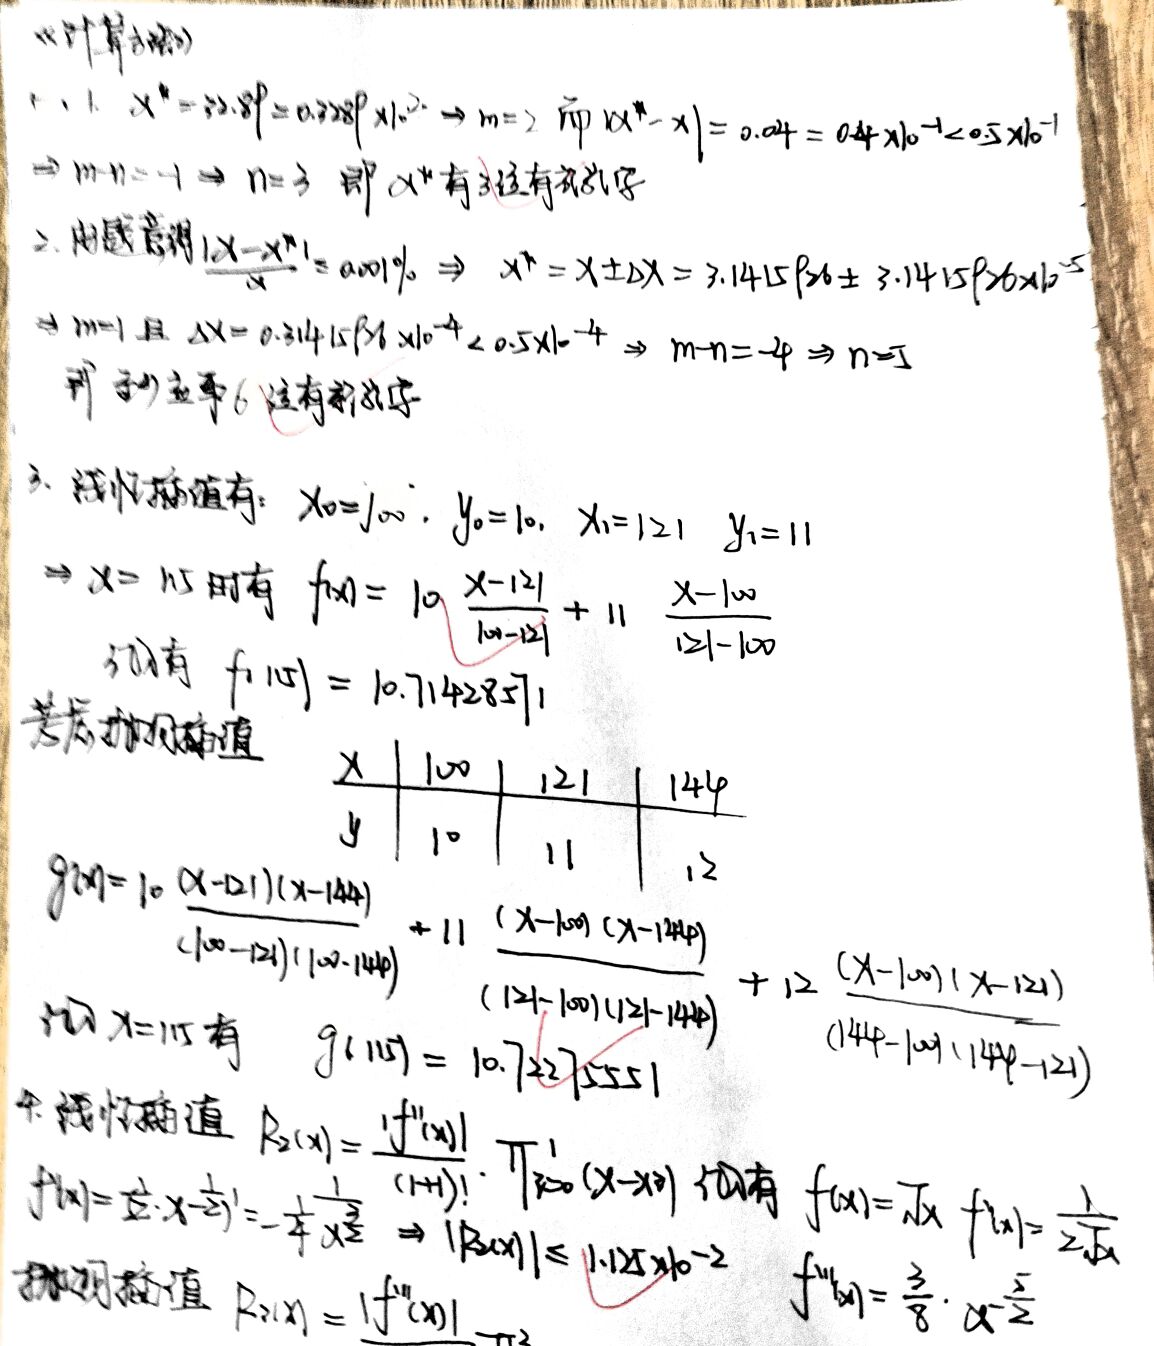 《计算方法》
一、1. x* = 32.89 = 0.3289×10² ⇒ m=2 而 |x*-x| = 0.04 = 0.4×10⁻¹ < 0.5×10⁻¹
⇒ m-n=-1 ⇒ n=3 即 x* 有3位有效数字
2. 由题意得 |x-x*|/x = 0.001% ⇒ x* = x±Δx = 3.1415926 ± 3.1415926×10⁻⁵
⇒ m=1 且 Δx = 0.31415926×10⁻⁴ < 0.5×10⁻⁴ ⇒ m-n=-4 ⇒ n=5
即 至少应取6位有效数字
3. 线性插值有: x₀=100. y₀=10. x₁=121 y₁=11
⇒ x=115时有 f(x) = 10 (x-121)/(100-121) + 11 (x-100)/(121-100)
所以有 f(115) = 10.71428571
考虑抛物插值
x 100 121 144
y 10 11 12
g(x) = 10 (x-121)(x-144)/(100-121)(100-144) + 11 (x-100)(x-144)/(121-100)(121-144) + 12 (x-100)(x-121)/(144-100)(144-121)
所以 x=115有 g(115) = 10.72275551
4. 线性插值 R₂(x) = |f''(x)|/(1+1)! · Π (x-x) 所以有 f(x)=√x f'(x)=1/(2√x)
f''(x) = (1/2·x^(-1/2))' = -1/4 1/x^(3/2) ⇒ |R₂(x)| ≤ 1.125×10⁻² f'''(x) = 3/8 · x^(-5/2)
抛物插值 R₂(x) = |f'''(x)|